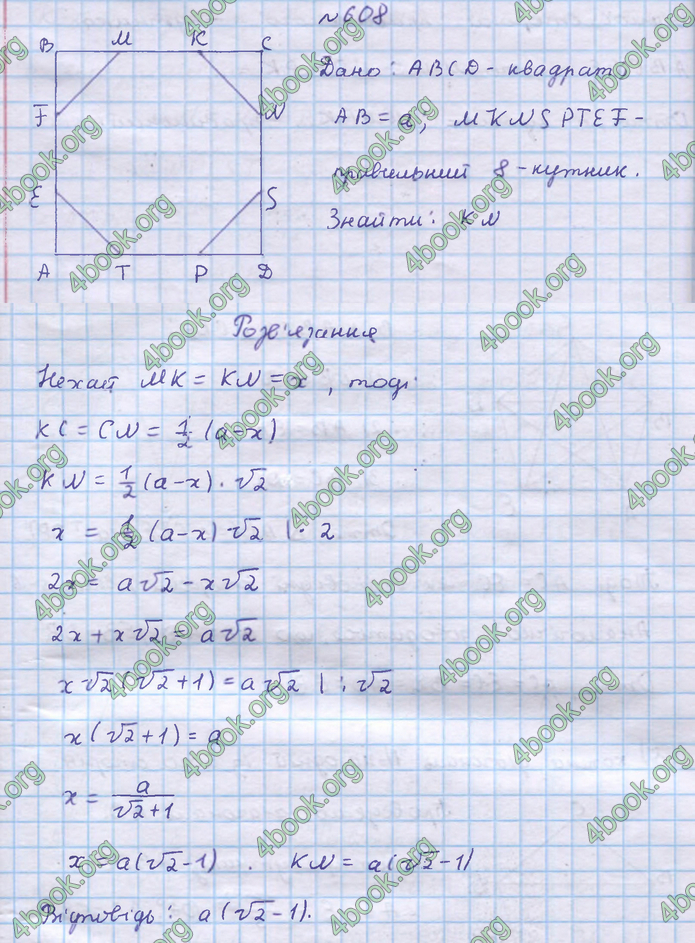 №608
B M K C
F N
E S
A T P D
Дано: ABCD - квадрат
AB = a; MKNSPTEF -
правильний 8-кутник.
Знайти: KN
Розв'язання
Нехай MK = KN = x, тоді
KC = CN = 1/2 (a-x)
KN = 1/2 (a-x) · √2
x = 1/2 (a-x) √2 | · 2
2x = a√2 - x√2
2x + x√2 = a√2
x√2 (√2+1) = a√2 | : √2
x(√2+1) = a
x = a/(√2+1)
x = a(√2-1). KN = a(√2-1)
Відповідь: a(√2-1).
4book.org